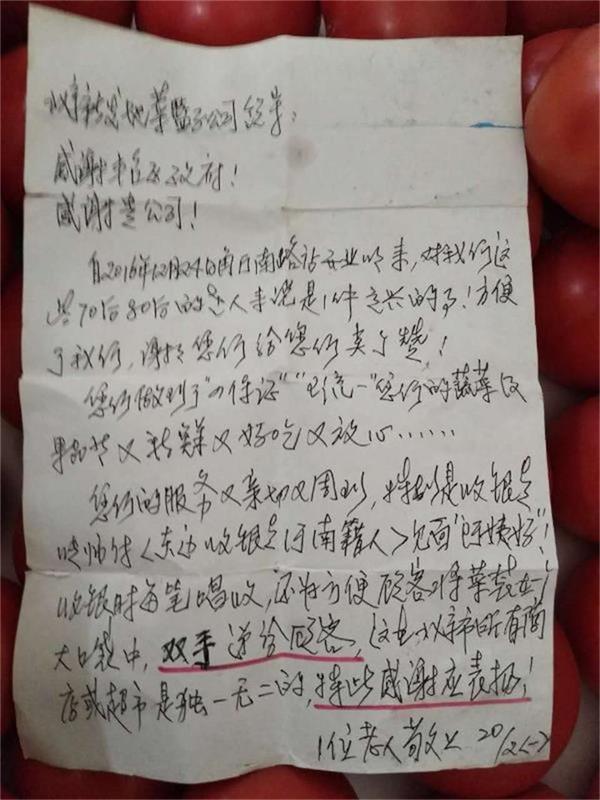 北京市新发地菜篮子公司领导：
感谢丰台区政府！
感谢贵公司！
自2016年12月24日角门南路站开业以来，对我们这
些70后80后的老人来说是1件高兴的事！方便
了我们，谢谢您们给您们点了赞！
您们做到了"四保证""五统一"您们的蔬菜及
果品等又新鲜又好吃又放心……
您们的服务又亲切又周到，特别是收银员
师傅<东边收银员河南籍人>见面"阿姨好"！
收银时每笔唱收，还为方便顾客将菜装在一个
大口袋中，双手递给顾客，这在北京市所有商
店或超市是独一无二的，特此感谢应表扬！
1位老人敬上 20/2<-7